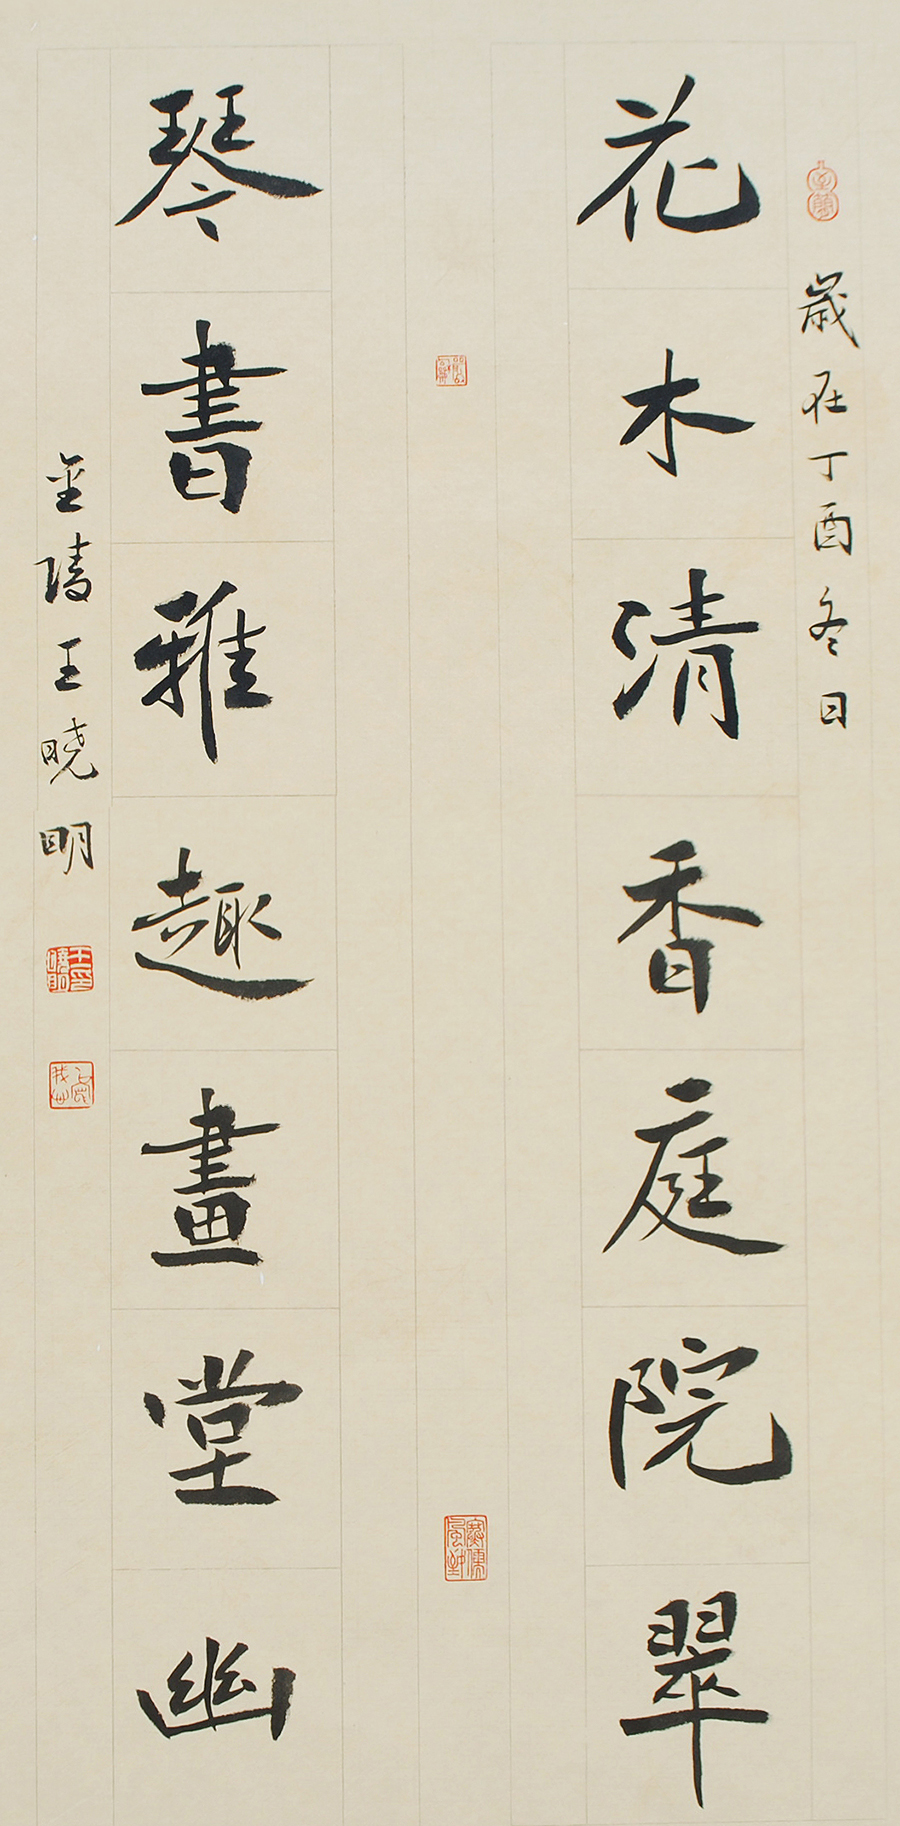 歲在丁酉冬日
花木清香庭院翠
琴書雅趣畫堂幽
金陵王曉明